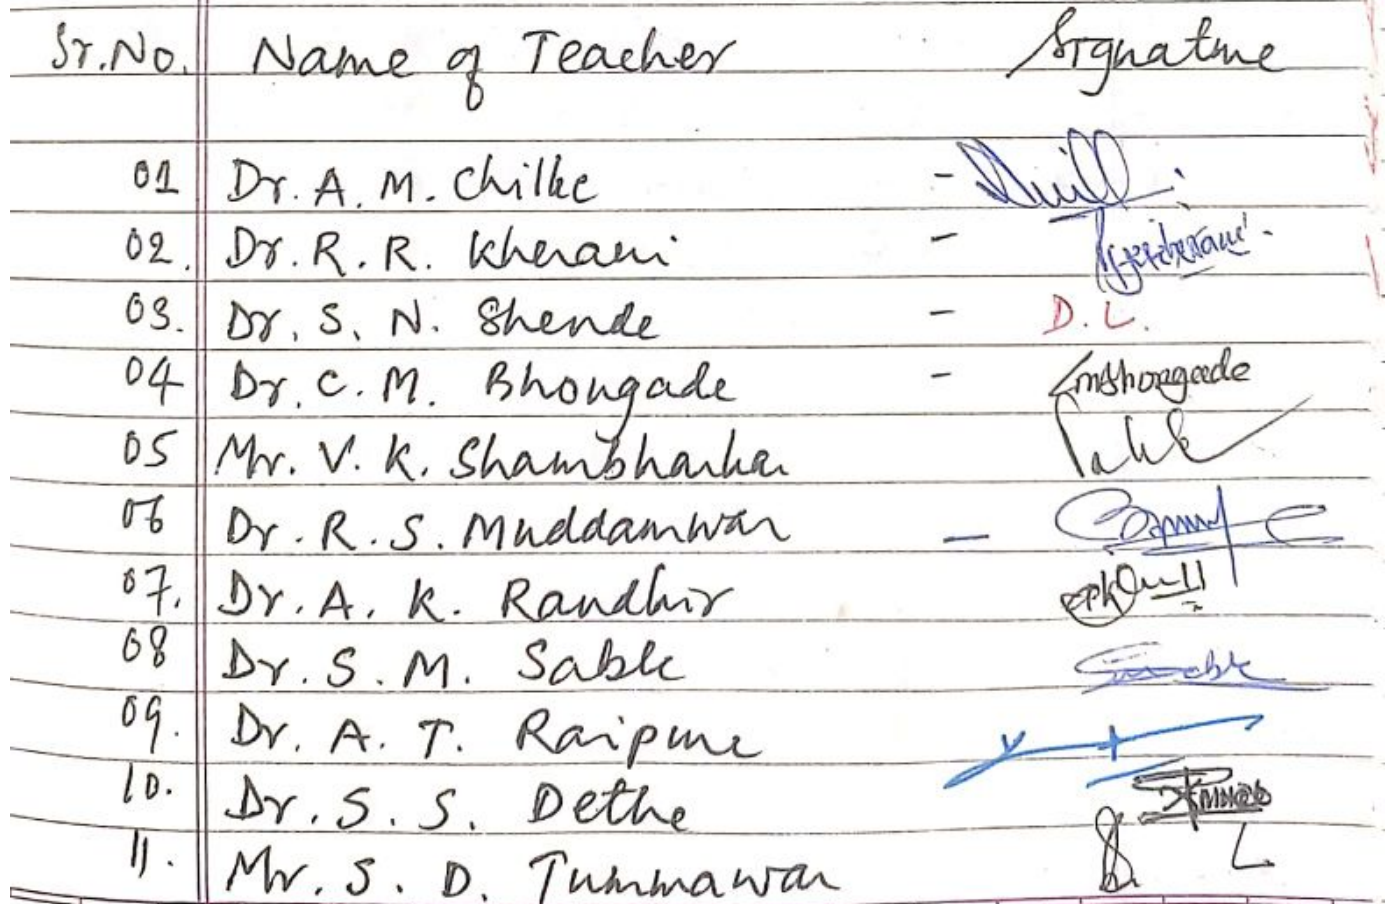 Sr.No. Name of Teacher Signature
01 Dr. A. M. Chilke -
02. Dr. R. R. Kherani -
03. Dr. S. N. Shende - D. L.
04 Dr. C. M. Bhongade - Cmbhongade
05 Mr. V. K. Shambharkar
06 Dr. R. S. Muddamwar -
07. Dr. A. K. Randhir
08 Dr. S. M. Sable
09. Dr. A. T. Raipure
10. Dr. S. S. Dethe
11. Mr. S. D. Tummawar L